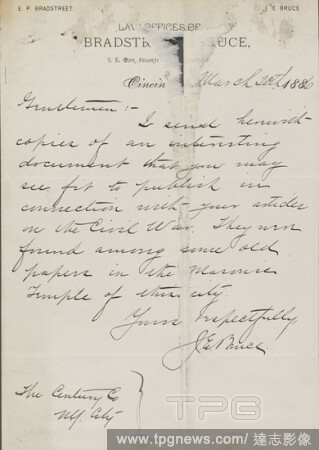 E. P. BRADSTREET.
J. E. BRUCE
LAW OFFICES OF
BRADSTR BRUCE,
S. E. COR. FOURTH
Cincin March 20th 1886
Gentlemen :-
I send herewith
copies of an interesting
document that you may
see fit to publish in
connection with your articles
on the Civil War. They were
found among some old
papers in the Masonic
Temple of this city
Yours respectfully
J E Bruce
The Century Co
N.Y. City
TPG
www.tpgnews.com / 達志影像